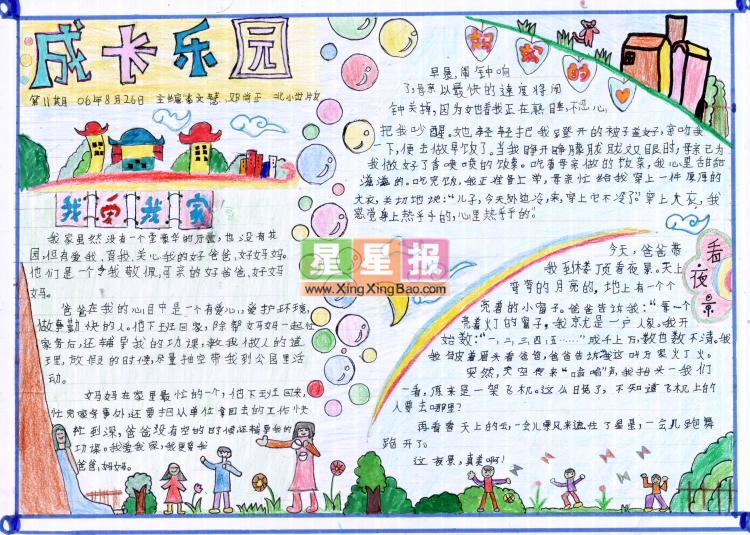 成长乐园
第11期 06年8月26日 主编
我爱我家
我家虽然没有一个豪华的厅堂，也没有花
园，但有爱我、育我、关心我的好爸爸，好妈妈。
他们是一个令我敬佩、可亲的好爸爸，好妈
妈。
爸爸在我的心目中是一个有爱心，爱护环境，
做事勤快的人。他下班回家，除帮妈妈一起忙
家务后，还辅导我的功课，教我做人的道
理，放假的时候，尽量抽空带我到公园里活
动。
妈妈在家里最忙的一个，他下班回来，
忙完家务事外还要把从单位拿回去的工作
忙到深，爸爸没有空的时候还辅导我的
功课。我爱我家，我更爱我
爸爸，妈妈。
妈妈的
早晨，闹钟响
了，母亲以最快的速度将闹
钟关掉，因为她看我正在熟睡，不忍心
把我吵醒。她轻轻把我蹬开的被子盖好，亲吻我
一下，便去做早饭了。当我睁开睡朦胧的双眼时，母亲已为
我做好了香喷喷的饭菜。吃着母亲做的饭菜，我心里甜甜
滋滋的。吃完饭，我正准备上学，母亲忙给我穿上一件厚厚的
大衣，关切地说：“儿子，今天外边冷，来，穿上它不冷了。”穿上大衣，我
感觉身上热乎乎的，心里热乎乎的。
看夜景
今天，爸爸带
我到楼顶看夜景。天上
弯弯的月亮，地上有一个个
亮着的小窗子。爸爸告诉我：“每一个
亮着灯的窗子，就是一户人家。我开
始数：“一，二，三，四，五……”成千上万，数也数不清。我
皱着眉头看爸爸，爸爸告诉我这叫万家灯火。
突然，天空传来“嗡嗡”声，我抬头一
看，原来是一架飞机。这么日晚了，不知道飞机上的
人要去哪里？
再看看天上的云，一会儿飘来遮住了星星，一会儿跑舞
跑开了。
这夜景，真美啊！
星星报
www.XingXingBao.com